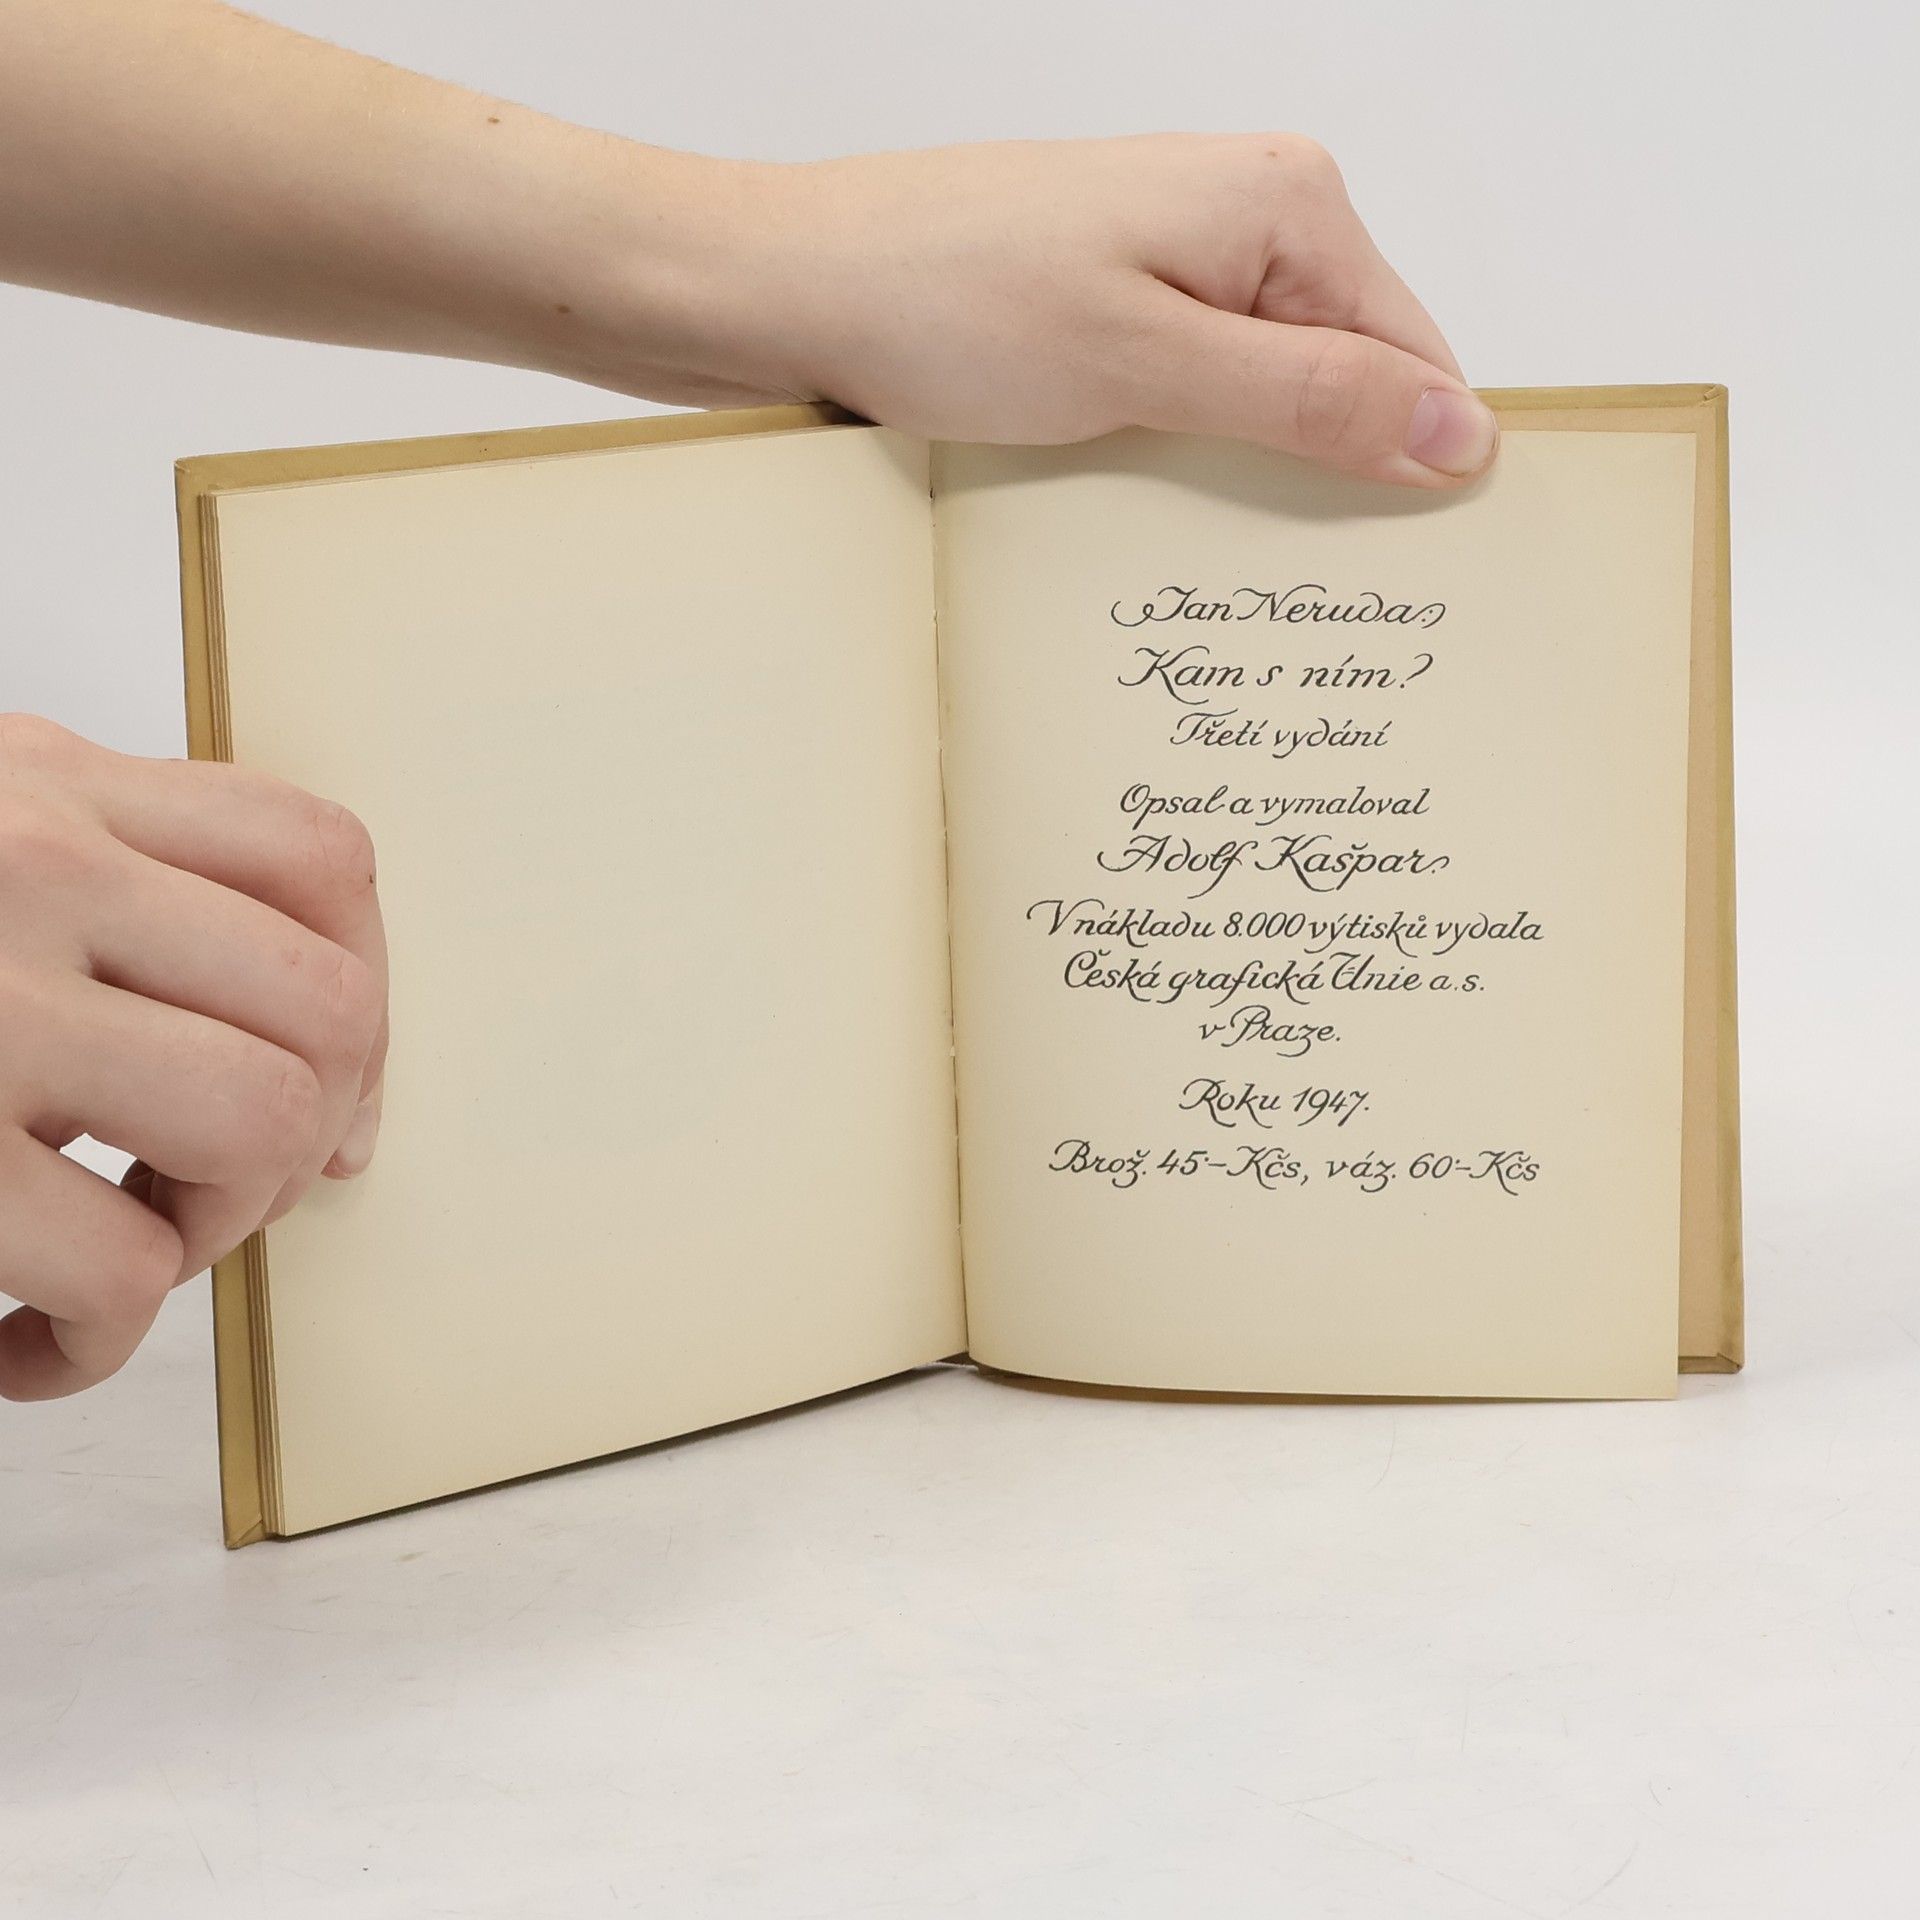 Jan Neruda:
Kam s ním?
Třetí vydání
Opsal a vymaloval
Adolf Kašpar.
V nákladu 8.000 výtisků vydala
Česká grafická Unie a.s.
v Praze.
Roku 1947.
Brož. 45·– Kčs, váz. 60·– Kčs